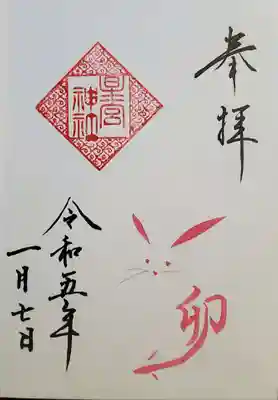 奉拝
星宮
神社
卯
令和五年
一月七日